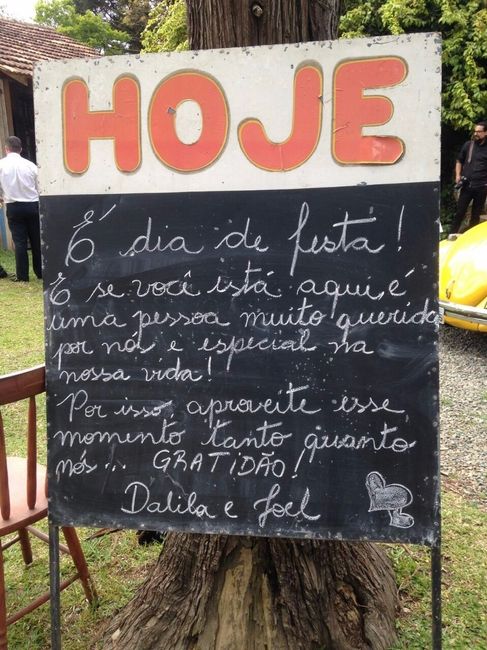 HOJE
É dia de festa!
E se você está aqui é
uma pessoa muito querida
por nós e especial na
nossa vida!
Por isso, aproveite esse
momento tanto quanto
nós... GRATIDÃO!
Dalila e Joel